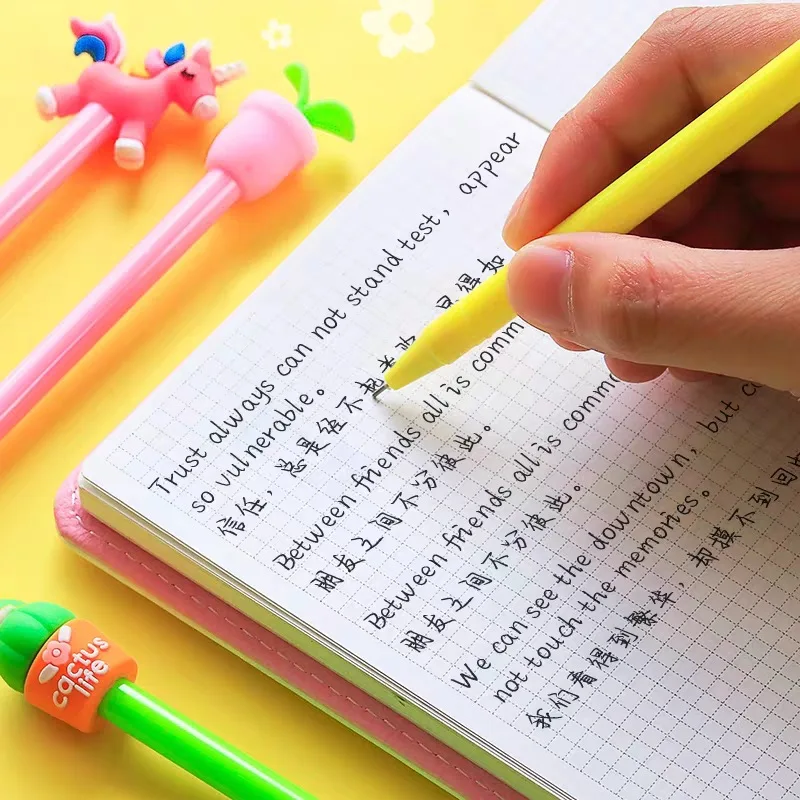 Trust always can not stand test, appear
so vulnerable。
信任，总是经不起考验，显得如
Between friends all is comm
朋友之间不分彼此。
Between friends all is commo
朋友之间不分彼此。
We can see the downtown, but c
not touch the memories。
我们看得到繁华，却摸不到回
cactus
life